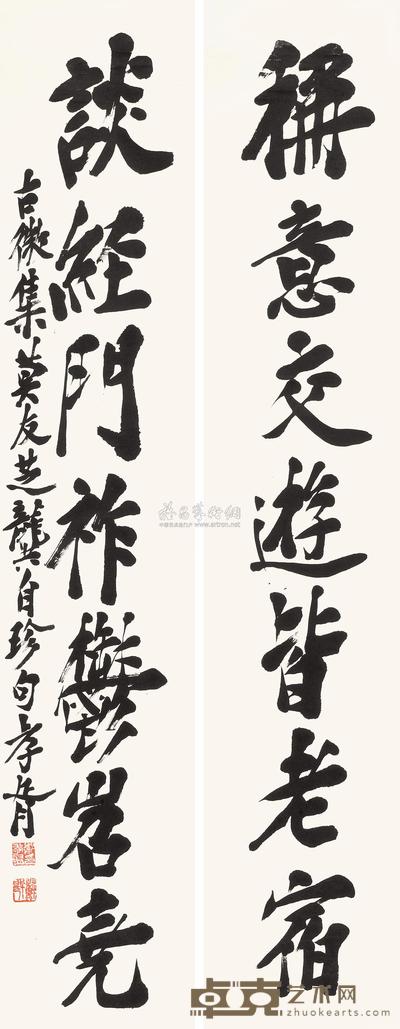 稱意交遊皆老宿
談經門祚鬱岧堯
古微集莫友芝龔自珍句孝胥
雅昌藝術網
www.artron.net
卓克艺术网
zhuokearts.com